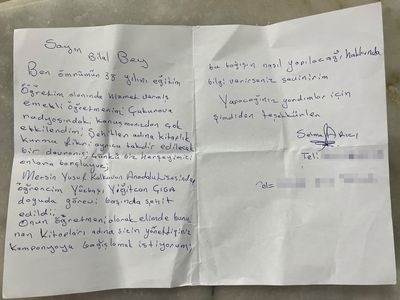 Sayın Bilal Bey
Ben ömrümün 38 yılını eğitim
Öğretim alanında hizmet vermiş
emekli öğretmenim; Çukurova
radyosındaki konuşmanızdan çok
etkilendim; Şehitler adına kitaplık
kurma fikri ayrıca takdir edilecek
bir davranış; Çünkü biz herşeyimizi
onlara borçluyuz;
Mersin Yusuf Kalkavan Anadolu Lisesinden
öğrencim Yüzbaşı Yiğitcan ÇIGA
doğuda görevi başında şehit
edildi.
Onun öğretmeni olarak elimde bulu
nan kitapları adına sizin yönettiğiniz
kampanyaya bağışlamak istiyorum;
bu bağışın nasıl yapılacağı hakkında
bilgi verirseniz sevinirim
Yapacağınız yardımlar için
şimdiden teşekkürler
Selma
Tel:
Tel=